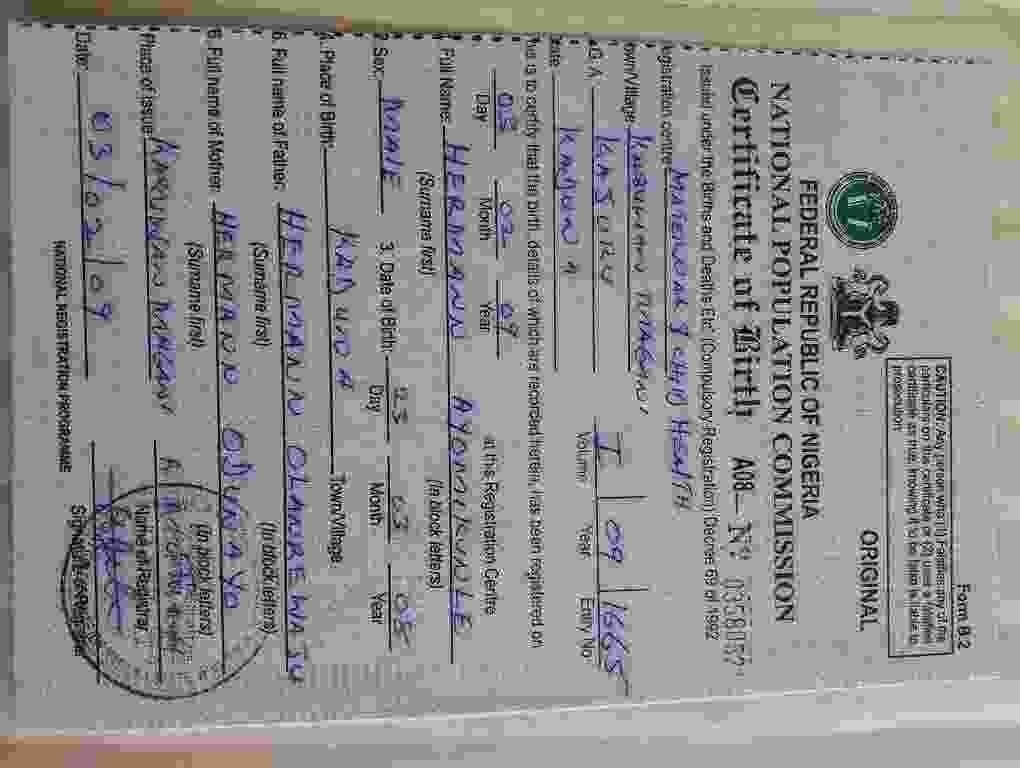 Form B.2
CAUTION: Any person who (1) Falsifies any of the
particulars on this certificate or (2) uses a falsified
certificate as true, knowing it to be false is liable to
prosecution
ORIGINAL
FEDERAL REPUBLIC OF NIGERIA
NATIONAL POPULATION COMMISSION
Certificate of Birth A08- Nº 0358057
Issued under the Births and Deaths Etc (Compulsory Registration) Decree 69 of 1992
egistration centre MATERNAL & CHILD HEALTH
own/Village
G.A. I 09 1665
tate KADUNA Volume Year Entry No.
his is to certify that the birth, details of which are recorded herein, has been registered on
03 02 09 at this Registration Centre
Day Month Year
Full Name: HERMANN AYOMIKUNLE
(Surname first) (In block letters)
2 Sex: MALE 3. Date of Birth: 23 03 08
Day Month Year
4. Place of Birth: KADUNA Town/Village
5. Full name of Father: HERMANN OLANREWAJU
(Surname first) (In block letters)
6. Full name of Mother: HERMANN ODUNAYO
(Surname first) (In block letters)
Place of issue:
Name of Registrar
Date: 03/02/09
NATIONAL REGISTRATION PROGRAMME